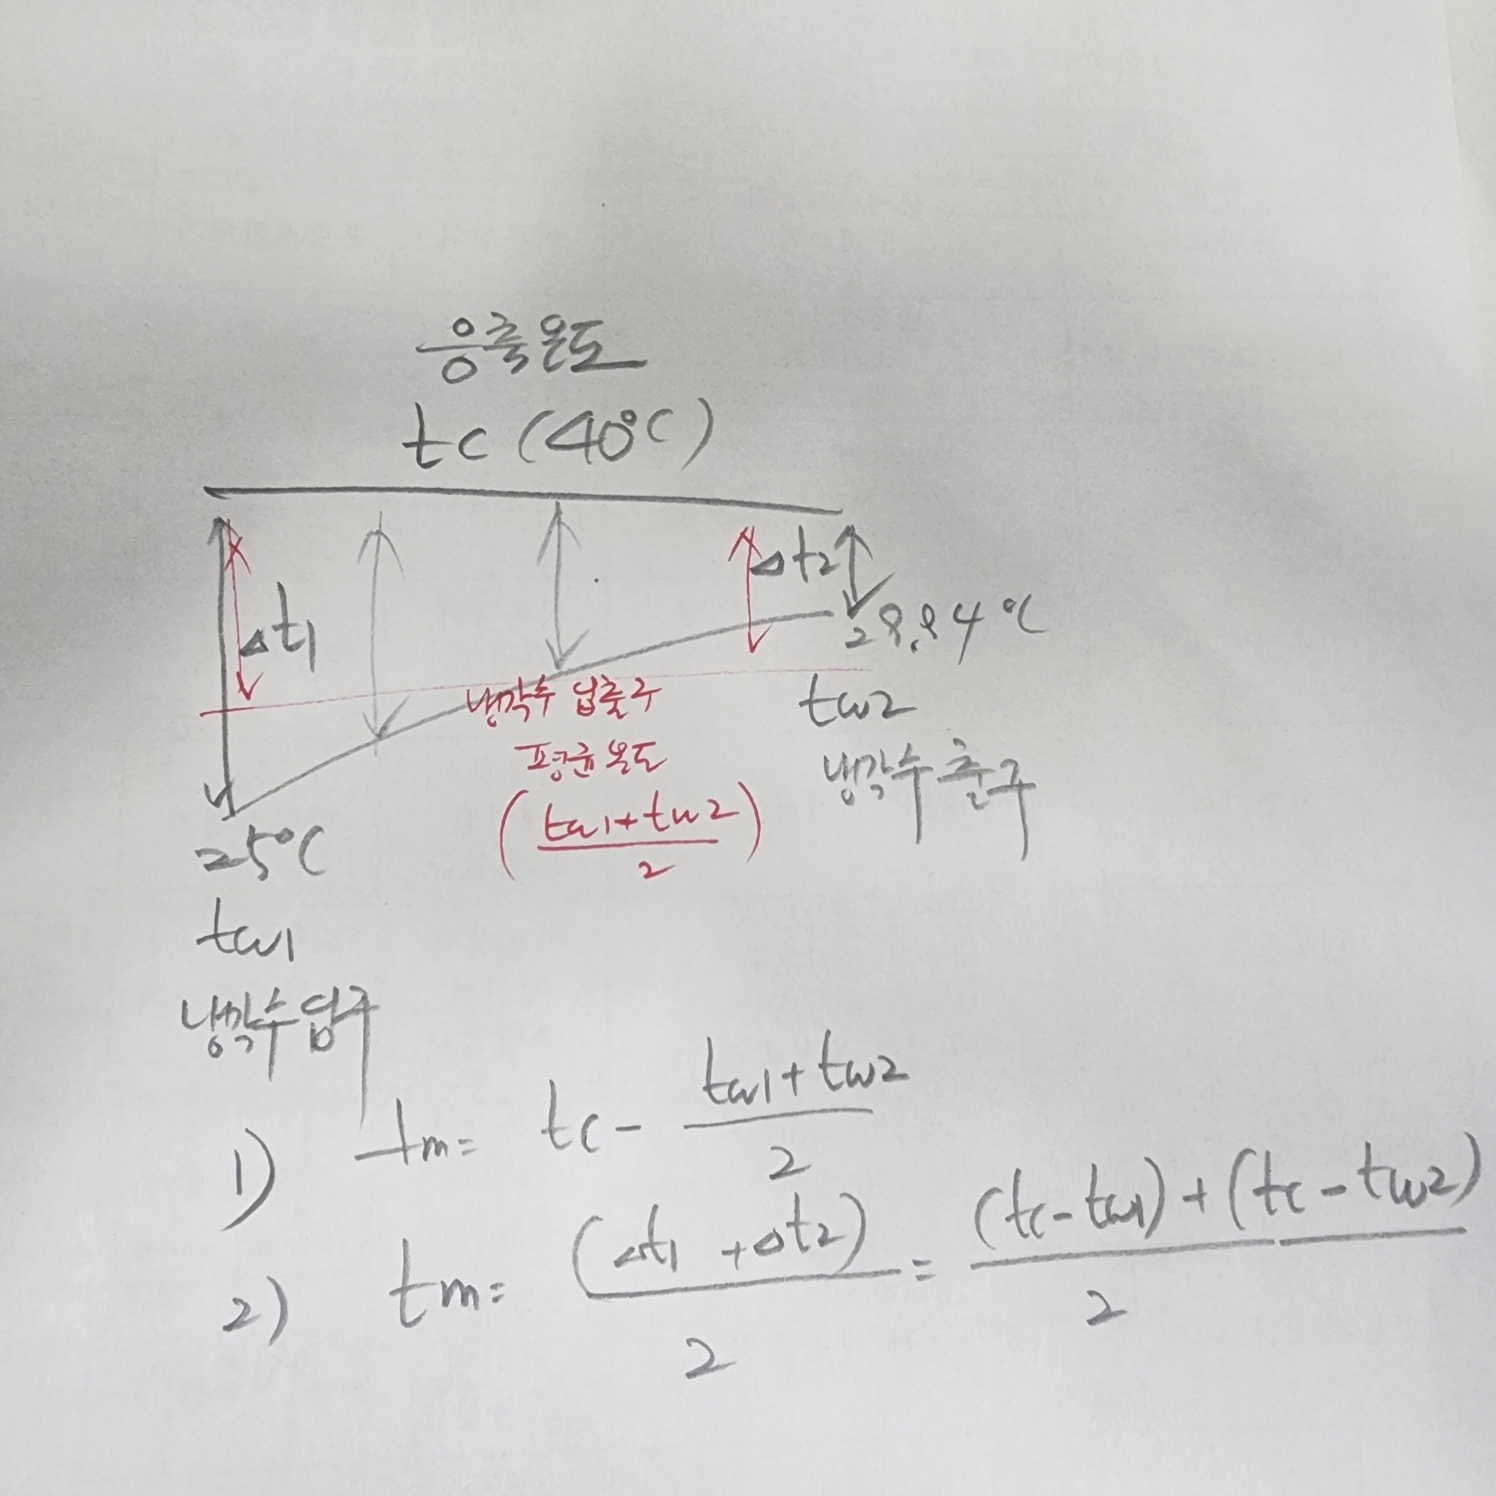 응축온도
tc (40℃)
Δt1
Δt2
28.84℃
냉각수 입출구
평균온도
(tw1+tw2 / 2)
tw2
냉각수 출구
25℃
tw1
냉각수 입구
1) tm= tc - tw1+tw2 / 2
2) tm= (Δt1 +Δt2) / 2 = (tc-tw1)+(tc-tw2) / 2